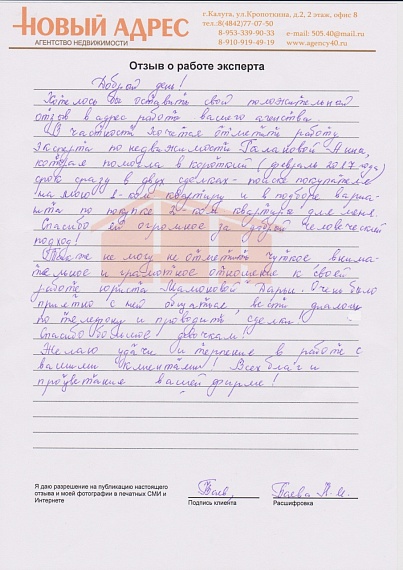 НОВЫЙ АДРЕС
АГЕНТСТВО НЕДВИЖИМОСТИ
г.Калуга, ул.Кропоткина, д.2, 2 этаж, офис 8
тел. 8(4842)77-07-50
8-953-339-90-33 e-mail: 505.40@mail.ru
8-910-919-49-19 www.agency40.ru
Отзыв о работе эксперта
Добрый день!
Хотелось бы оставить свой положительный
отзыв в адрес работы вашего агентства.
В частности хочется отметить работу
эксперта по недвижимости Анны,
которая помогла в короткий (февраль 2017 года)
срок сразу в двух сделках - поиске покупателя
на мою 1-ком квартиру и в подборе вариа-
нта по покупке 2-ком квартиры для меня.
Спасибо ей огромное за добрый человеческий
подход!
Также не могу не отметить чуткое внима-
тельное и грамотное отношение к своей
работе юриста Дарьи. Очень было
приятно с ней общаться, вести диалоги
по телефону и проводить сделки.
Спасибо большое девочкам!
Желаю удачи и терпение в работе с
вашими клиентами! Всех благ и
процветания вашей фирме!
Я даю разрешение на публикацию настоящего
отзыва и моей фотографии в печатных СМИ и
Интернете
Баев Баева
Подпись клиента Расшифровка